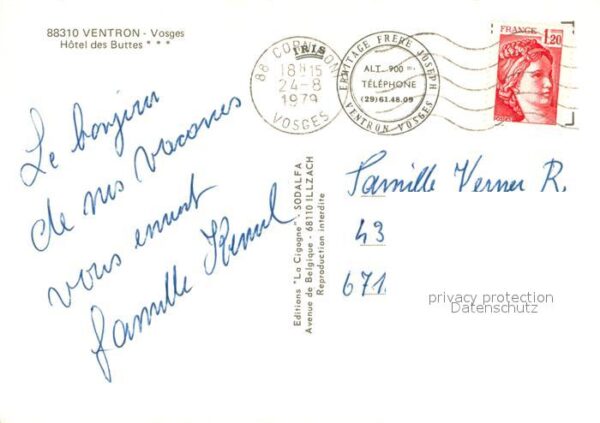 88310 VENTRON - Vosges
Hôtel des Buttes ***
88 CORNIMONT
IRIS
18H15
24-8
1979
VOSGES
ERMITAGE FRERE JOSEPH
ALT. 900 m
TÉLÉPHONE
(29) 61.48.09
VENTRON VOSGES
FRANCE
1,20
Le bonjour
de nos vacances
vous envoit
famille
Famille Verner R.
43
671
Editions "La Cigogne" - SODALFA
Avenue de Belgique - 68110 ILLZACH
Reproduction interdite
privacy protection
Datenschutz